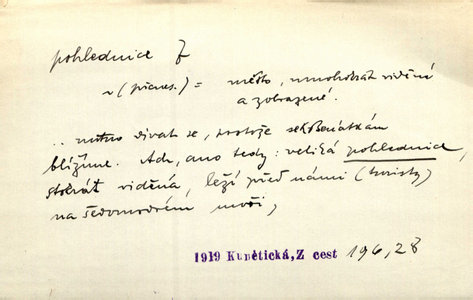 pohlednice f
~ (přenes.) = město, mnohokrát viděné
a zobrazené.
.. nutno dívat se, protože se k Benátkám
blížíme. Ach, ano tedy: veliká pohlednice,
stokrát viděná, leží před námi (turisty)
na šedomodrém moři,
1919 Kunětická, Z cest 196,28